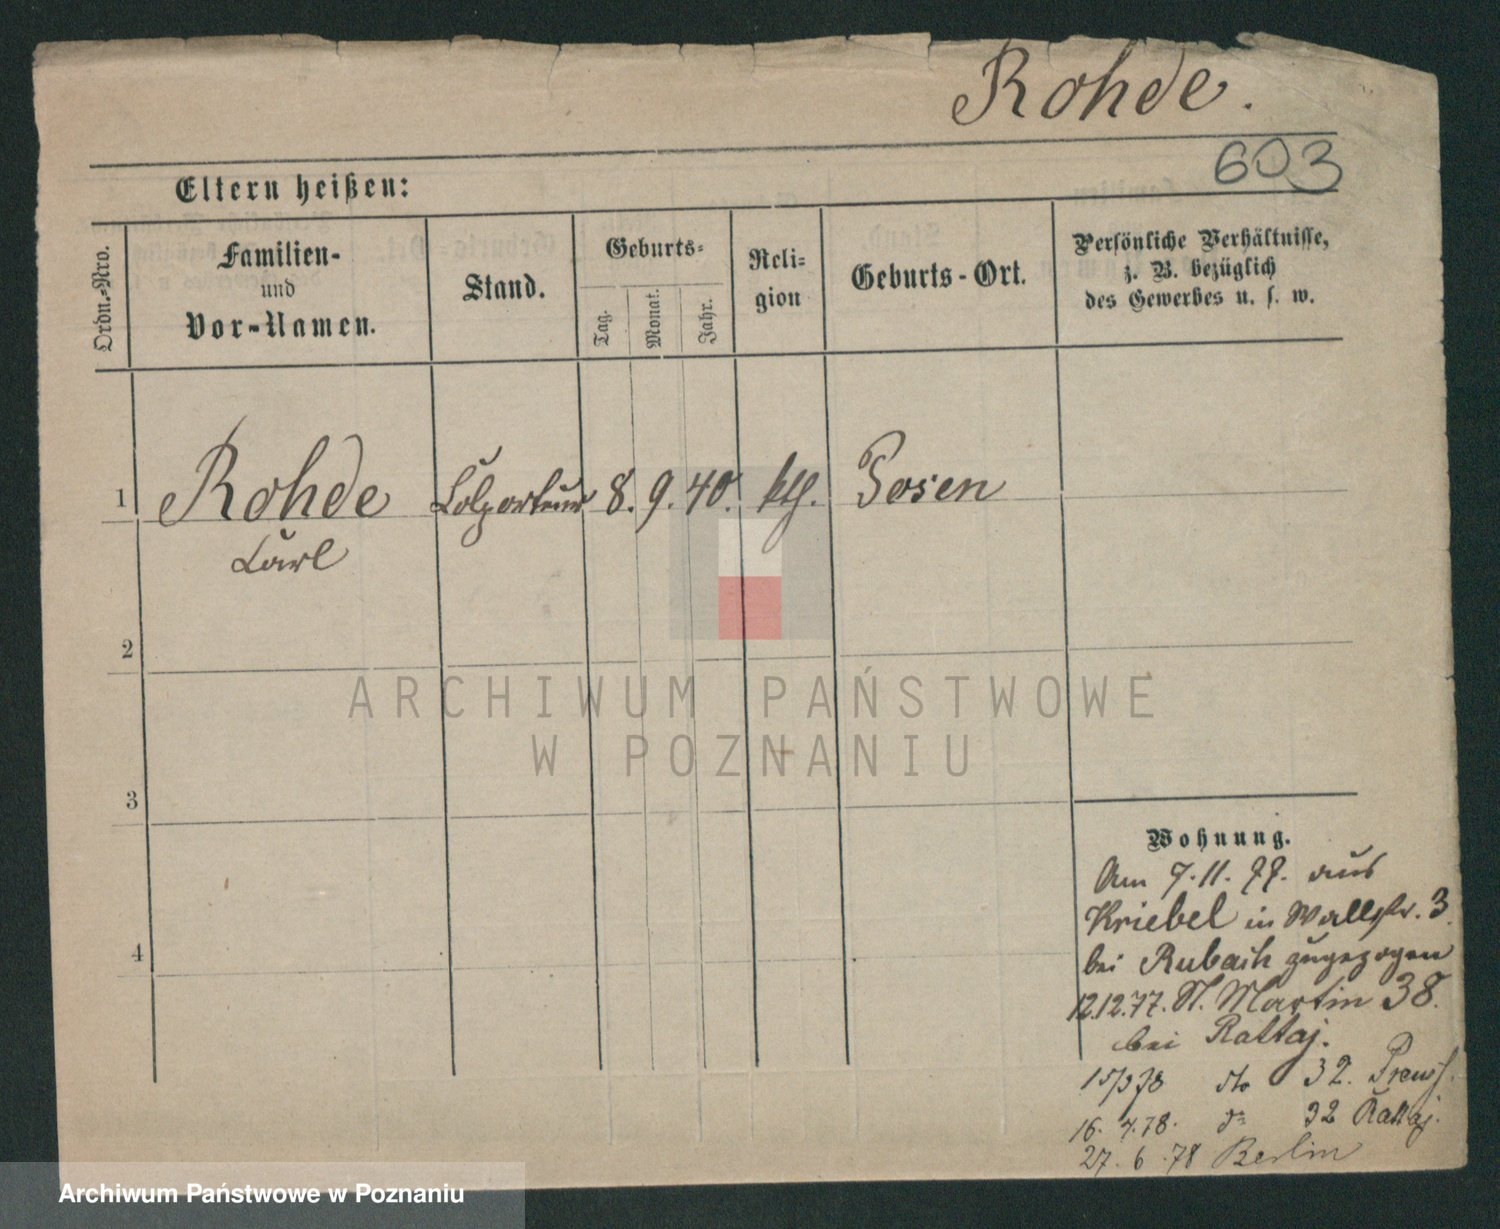 Rohde.
603
Eltern heißen:
Ordn.-Nro.
Familien-
und
Vor-Namen.
Stand.
Geburts-
Tag.
Monat.
Jahr.
Reli-
gion
Geburts-Ort.
Persönliche Verhältnisse,
z. B. bezüglich
des Gewerbes u. s. w.
1 Rohde Colporteur 8. 9. 40. kth. Posen
Carl
2
3
4
Wohnung.
Am 7.11.77. aus
Kriebel in Wallstr. 3.
bei zugezogen
12.12.77. St. Martin 38.
bei Rattaj.
dto 32.
16. 4. 78. do 32 Rattaj.
27. 6. 78 Berlin
ARCHIWUM PAŃSTWOWE
W POZNANIU
Archiwum Państwowe w Poznaniu